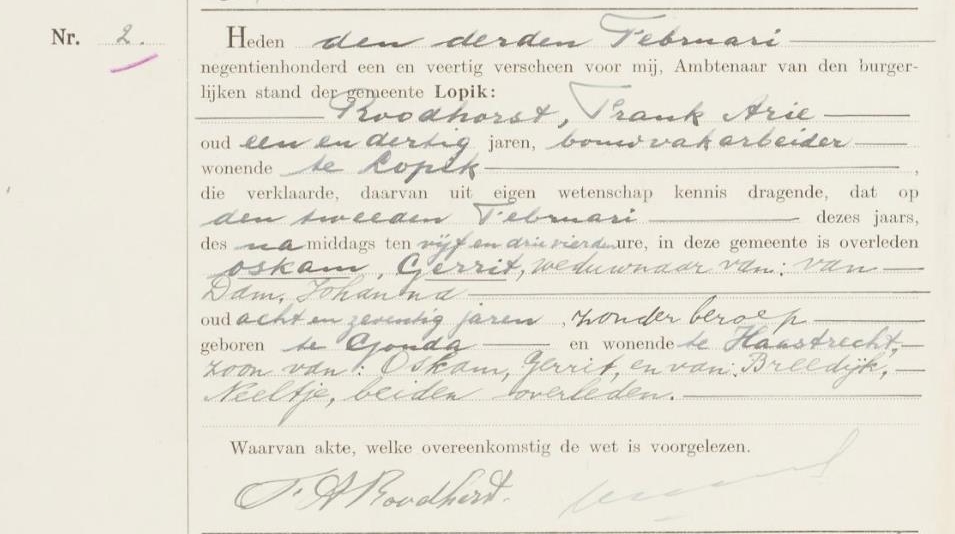 Nr. 2.
Heden den derden Februari
negentienhonderd een en veertig verscheen voor mij, Ambtenaar van den burger-
lijken stand der gemeente Lopik:
Roodhorst, Frank Arie
oud een en dertig jaren, bouwvakarbeider
wonende te Lopik,
die verklaarde, daarvan uit eigen wetenschap kennis dragende, dat op
den tweeden Februari dezes jaars,
des namiddags ten vijf en drie vierde ure, in deze gemeente is overleden
Oskam, Gerrit, weduwnaar van: van
Dam, Johanna
oud acht en zeventig jaren, zonder beroep
geboren te Gouda en wonende te Haastrecht,
zoon van: Oskam, Gerrit, en van: Breedijk,
Neeltje, beiden overleden.
Waarvan akte, welke overeenkomstig de wet is voorgelezen.
F. A Roodhorst.